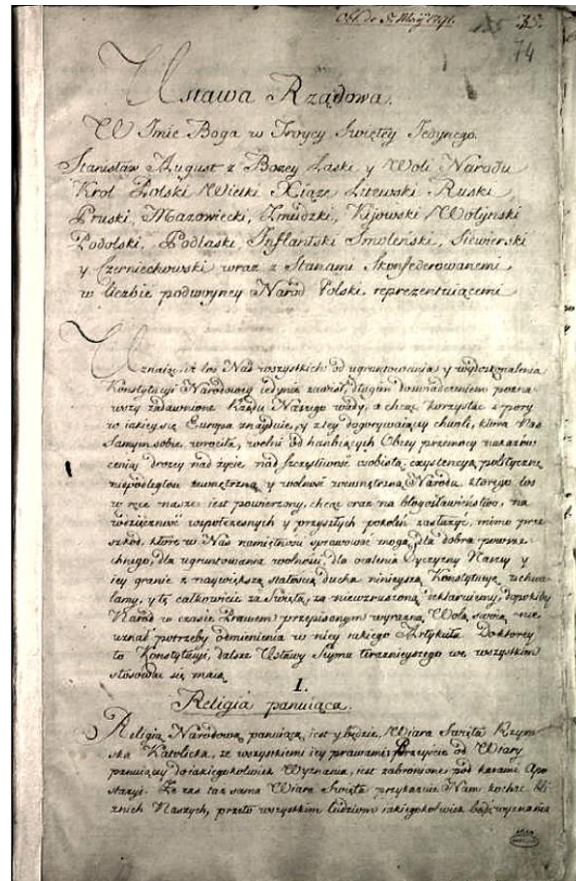 74
Ustawa Rządowa.
W Imie Boga w Troycy Swiętey Jedynego.
Stanisław August z Bożey Łaski y Woli Narodu
Krol Polski Wielki Xiąże Litewski Ruski
Pruski, Mazowiecki, Żmudzki, Kijowski Wołyński
Podolski, Podlaski, Inflantski Smoleński, Siewierski
y Czerniechowski wraz z Stanami Skonfederowanemi
w liczbie podwoyney Naród Polski reprezentuiącemi
Uznaiąc iż los Nas wszystkich od ugruntowania y wydoskonalenia
Konstytucyi Narodowey iedynie zawisł, długim doswiadczeniem pozna-
wszy zadawnione Rządu Naszego wady, a chcąc korzystać z pory
w iakiey się Europa znayduie, y z tey dogorywaiącey chwili, ktora Nas
Samym sobie wrociła, wolni od hańbiących Obcey przemocy nakazow
ceniąc drożey nad życie nad Szczęśliwość osobistą, exystencyą polityczną
niepodległość zewnętrzną y wolność wewnętrzną Narodu, ktorego los
w ręce nasze iest powierzony, chcąc oraz na błogosławieństwo, na
wdzięczność wspołczesnych y przyszłych pokoleń zasłużyć, mimo prze-
szkod, ktore w Nas namiętności sprawować mogą, dla dobra powsze-
chnego, dla ugruntowania wolności, dla ocalenia Oyczyzny Naszey y
iey granic z naywiększą stałością ducha ninieyszą Konstytucyę uchwa-
lamy, y tę całkowicie za Swiętą, za niewzruszoną deklaruiemy, dopokiby
Narod w czasie Prawem przepisanym wyraźną Wolą swoią nie
uznał potrzeby odmienienia w niey iakiego Artykułu. Do ktorey
to Konstytucyi, dalsze Ustawy Seymu teraznieyszego we wszystkim
stosować się maią
I.
Religia panuiąca.
Religią Narodową panuiącą iest y będzie, Wiara Swięta Rzym-
ska Katolicka, ze wszystkiemi iey prawami; Przeyście od Wiary
panuiącey do iakiegokolwiek Wyznania, iest zabronione pod karami Apo-
stazyi. Że zas taż sama Wiara Swięta przykazuie Nam kochać bli-
znich Naszych, przeto wszystkim ludziom iakiegokolwiek bądź wyznania